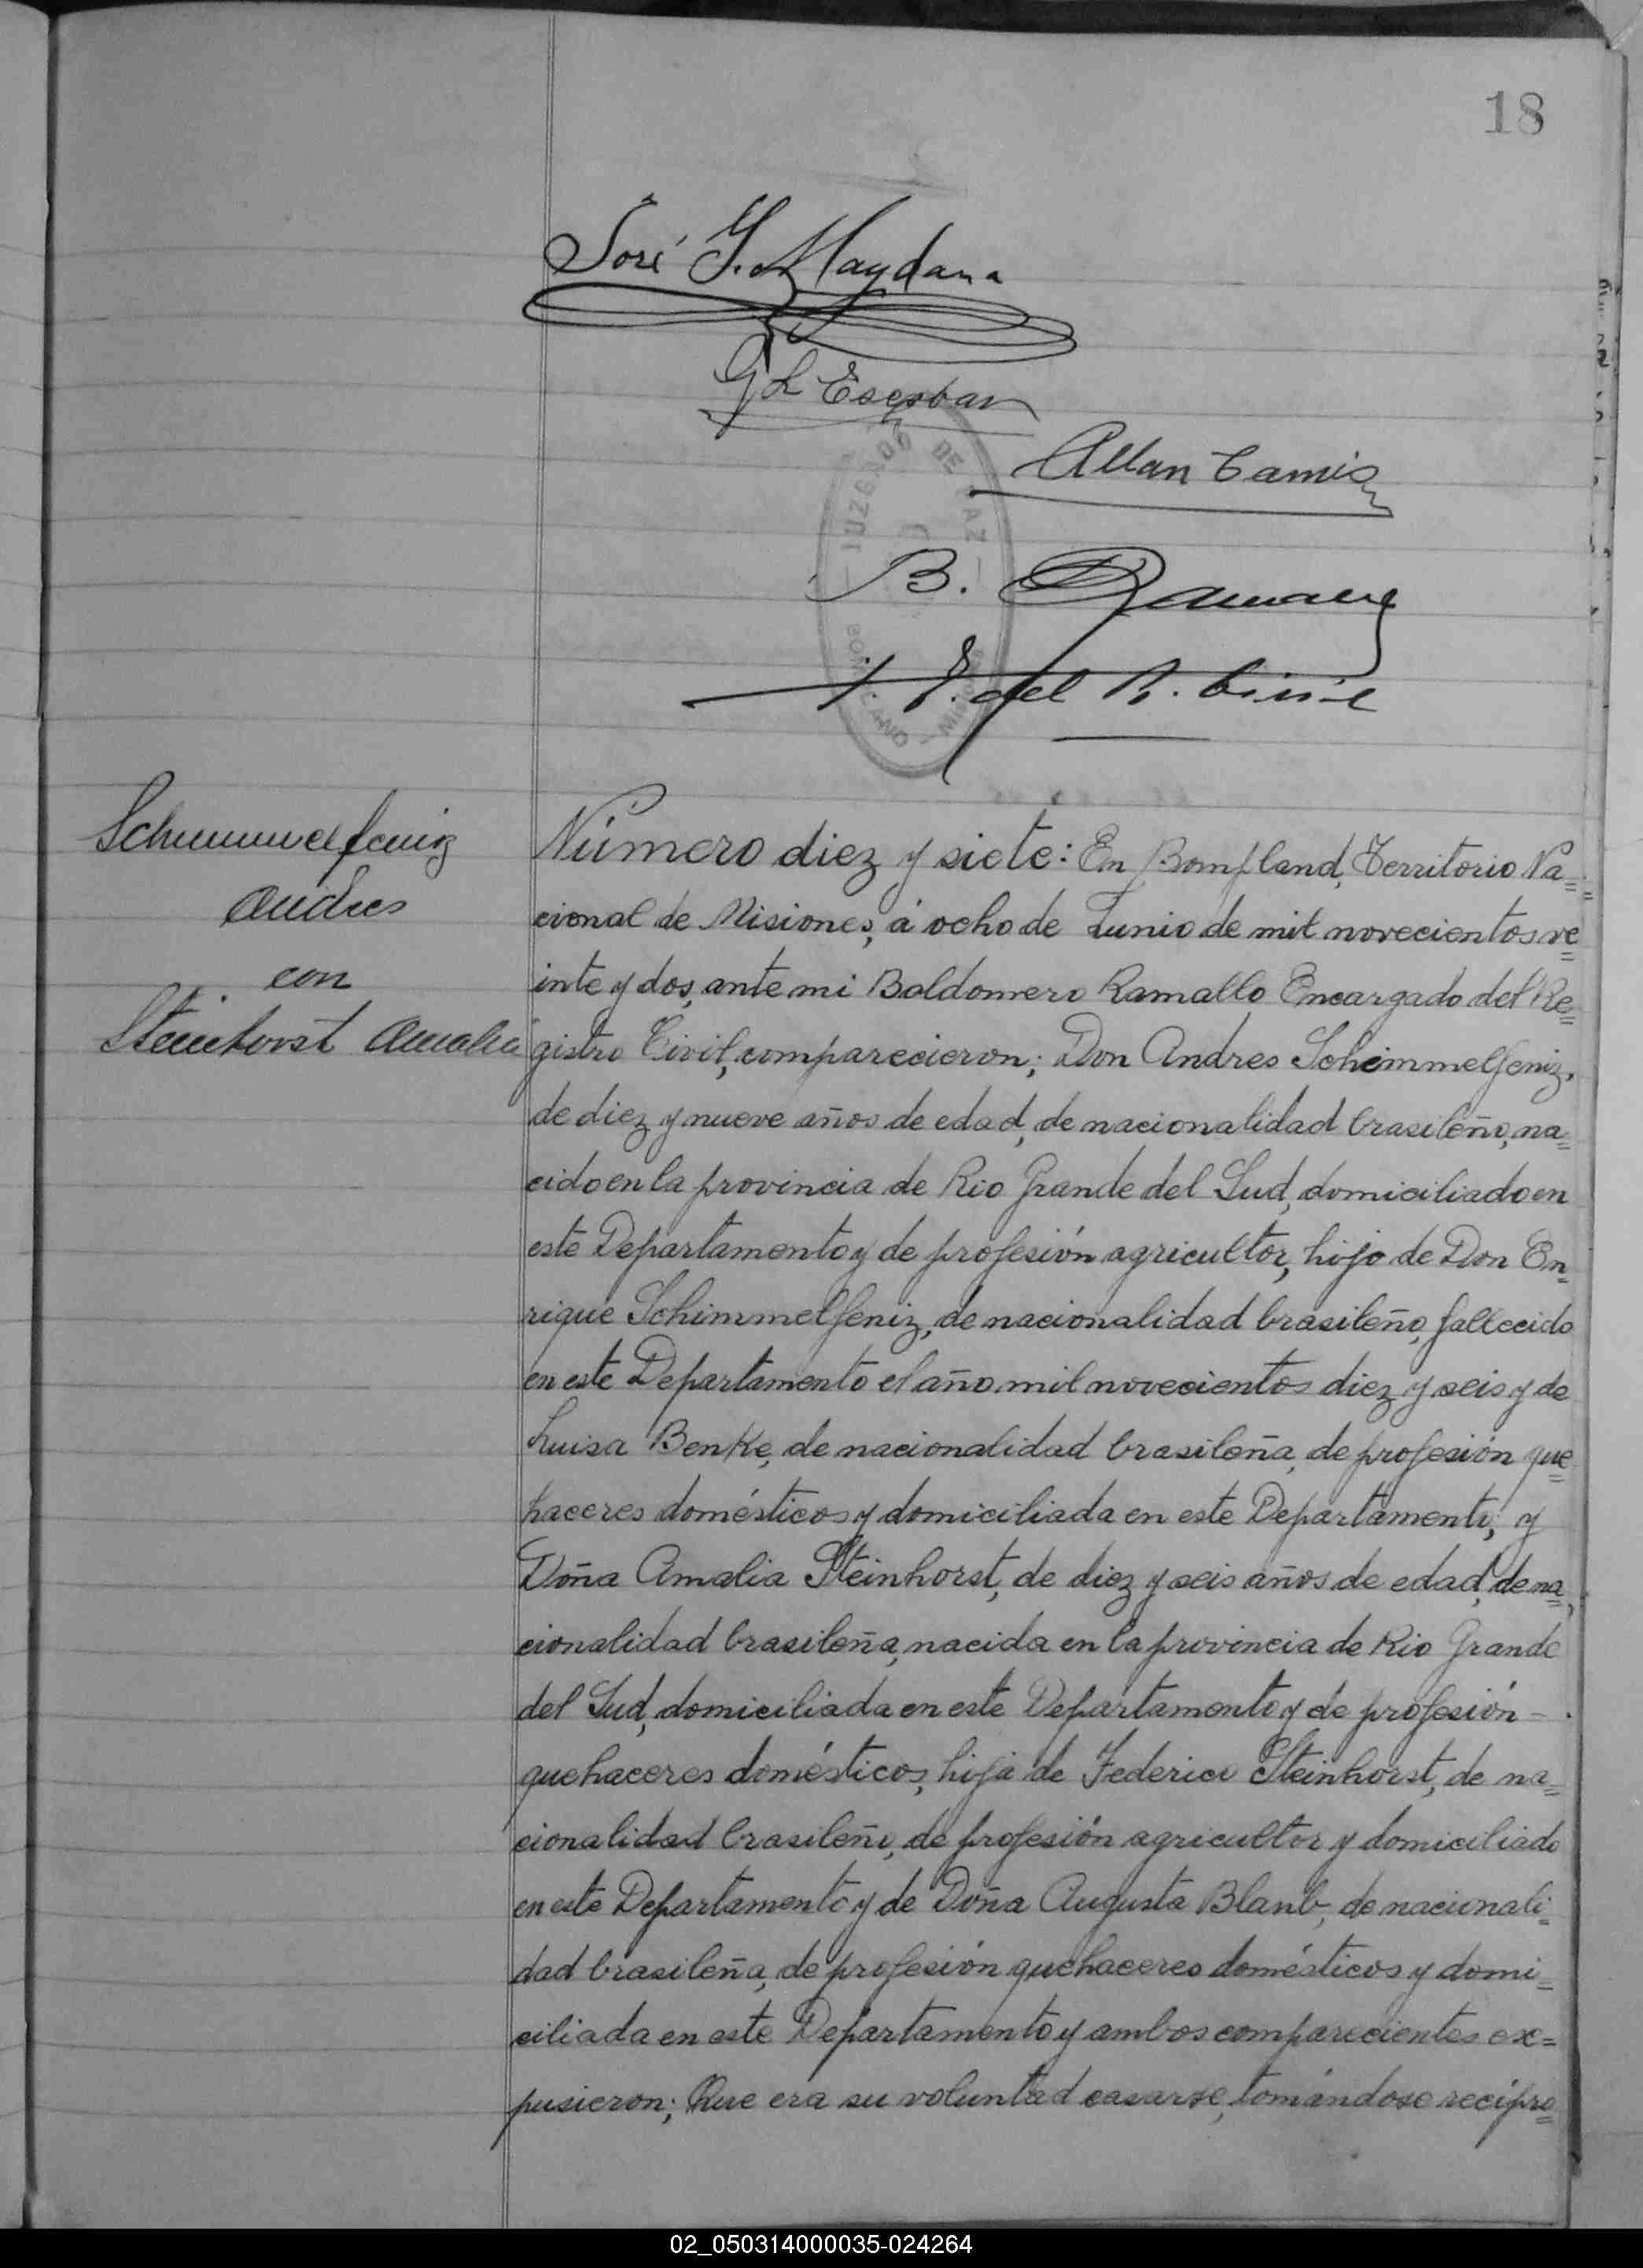 18
José G. Maydana
G L Escobar
Allan Camis
JUZGADO DE PAZ
B. Ramallo
E. del R. Civil
Schimmelfeniz
Andres
con
Steinhorst Amalia
Número diez y siete: En Bompland, Territorio Na=
cional de Misiones, á ocho de Junio de mil novecientos ve
inte y dos, ante mi Baldomero Ramallo Encargado del Re=
gistro Civil, comparecieron; Don Andres Schimmelfeniz,
de diez y nueve años de edad, de nacionalidad brasileño, na=
cido en la provincia de Rio Grande del Sud, domiciliado en
este Departamento y de profesión agricultor, hijo de Don En=
rique Schimmelfeniz, de nacionalidad brasileño, fallecido
en este Departamento el año mil novecientos diez y seis y de
Luisa Benke, de nacionalidad brasileña, de profesión que=
haceres domésticos y domiciliada en este Departamento; y
Doña Amalia Steinhorst, de diez y seis años de edad, de na=
cionalidad brasileña, nacida en la provincia de Rio Grande
del Sud, domiciliada en este Departamento y de profesión -
quehaceres domésticos, hija de Federico Steinhorst, de na=
cionalidad brasileño, de profesión agricultor y domiciliado
en este Departamento y de Doña Augusta Blanb, de nacionali=
dad brasileña, de profesión quehaceres domésticos y domi=
ciliada en este Departamento y ambos comparecientes ex=
pusieron; Que era su voluntad casarse, tomándose recípro=
02_050314000035-024264